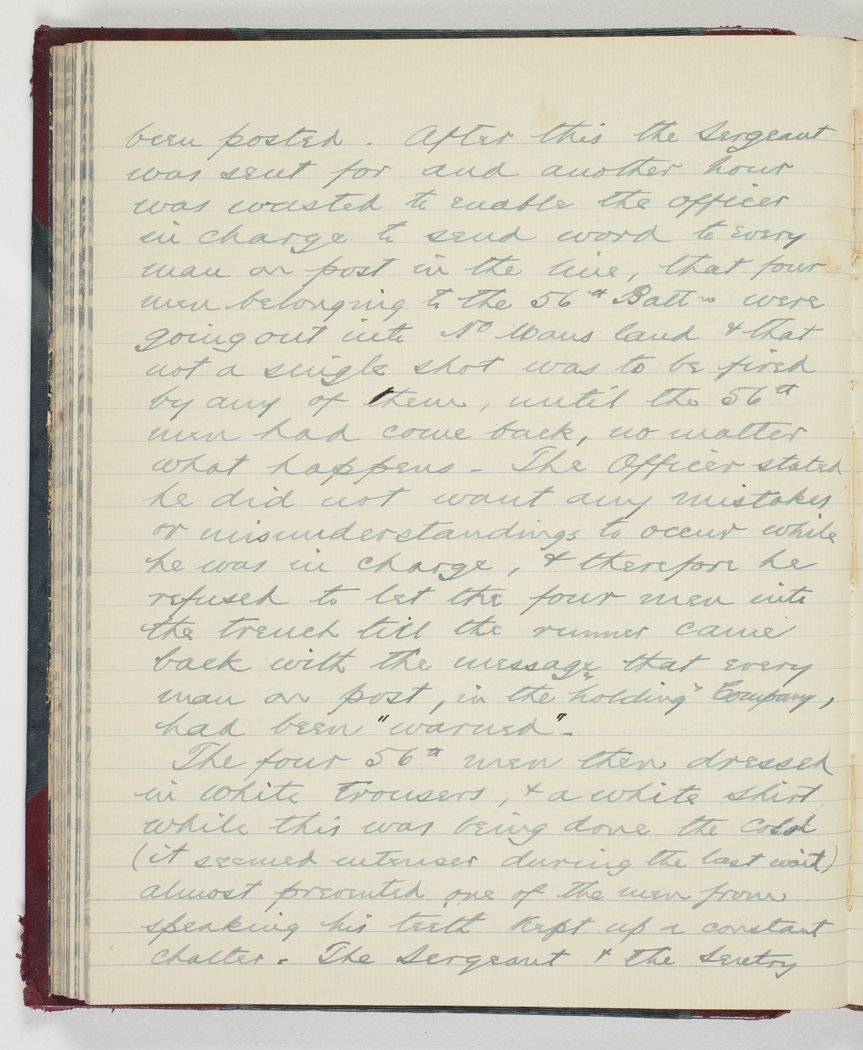 been posted. After this the Sergeant
was sent for and another hour
was wasted to enable the officer
in charge to send word to every
man on post in the line, that four
men belonging to the 56th Battn were
going out into No Mans land & that
not a single shot was to be fired
by any of them, until the 56th
men had come back, no matter
what happens - The Officer stated
he did not want any mistakes
or misunderstandings to occur while
he was in charge, & therefore he
refused to let the four men into
the trench till the runner came
back with the message that every
man on post, in the "holding" Company,
had been "warned".
The four 56th men then dressed
in white trousers, & a white shirt
while this was being done the cold
(it seemed intenser during the last wait)
almost prevented one of the men from
speaking his teeth kept up a constant
chatter. The Sergeant & the Sentry